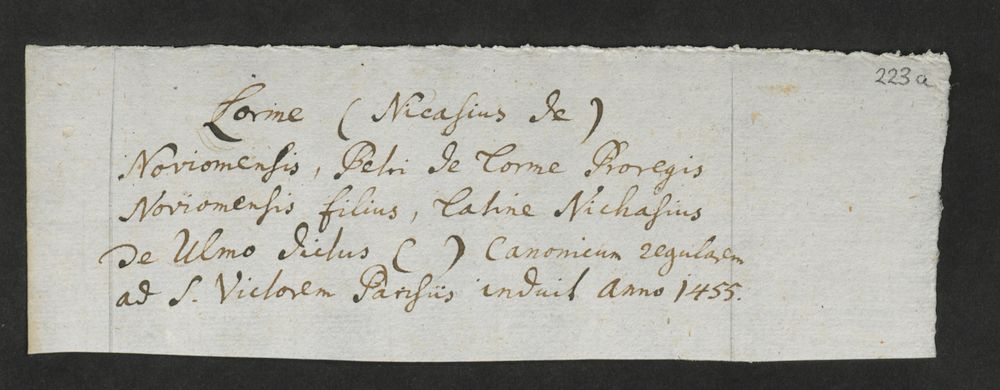 223a
Lorme (Nicasius de)
Noviomensis, Petri de Lorme Proregis
Noviomensis filius, Latine Nichasius
De Ulmo dictus ( ) Canonicum regularem
ad S. Victorem Parisiis induit Anno 1455.